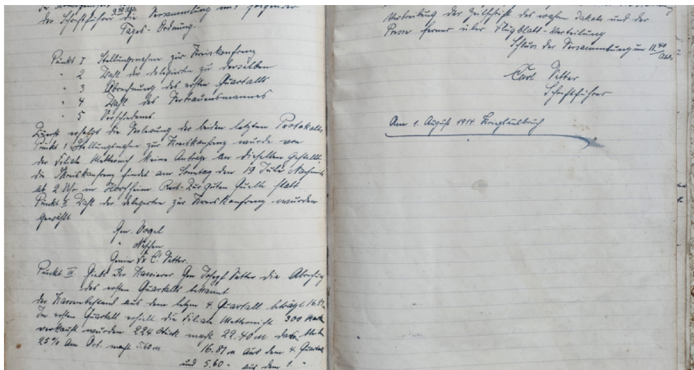 der Schriftführer die Versammlung mit folgender
Tages-Ordnung.
Punkt 1 Stellungnahme zur Kreiskonferenz
" 2 Wahl der Delegierten zu derselben
" 3 Abrechnung des ersten Quartalls
" 4 Wahl des Vertrauensmannes
" 5 Verschiedenes
Zuerst erfolgte die Verlesung der beiden letzten Protokolle
Punkt 1 Stellungnahme zur Kreiskonferenz wurde von
der Filiale Metternich keine Anträge an dieselbe gestellt.
die Kreiskonferenz findet am Sonntag den 19 Juli Nachmit
ab 2 Uhr in Rest. Zur guten Quelle statt
Punkt II Wahl der Delegierten zur Kreiskonferenz wurden
gewählt
Gen. Vogel
"
Vetter
Punkt III Gibt der Kassierer Gen Joseph Vetter die Abrechng
des ersten Quartalls bekannt
der Kassenbestand aus dem letzten 4. Quartall beträgt 16.87
Im ersten Quartall erhielt die Filiale Metternich 300 Marken
verkauft wurden 224 Stück macht 22.40 M davon
25% am Ort macht 5.60 M 16.87 M aus dem 4. Quartal
und 5,60 " aus dem 1 "
Verbreitung der Zeitschrift des wahren Jakobs und der
Presse ferner über Flugblatt-Verteilung
Schluss der Versammlung um 11.40
Carl Vetter
Schriftführer
Am 1. August 1914 Kriegsausbruch